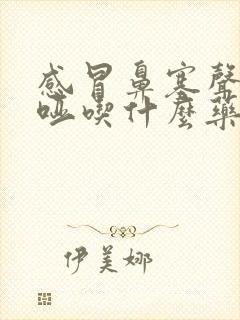 感冒鼻塞聲
啞喫什麼藥
伊美娜